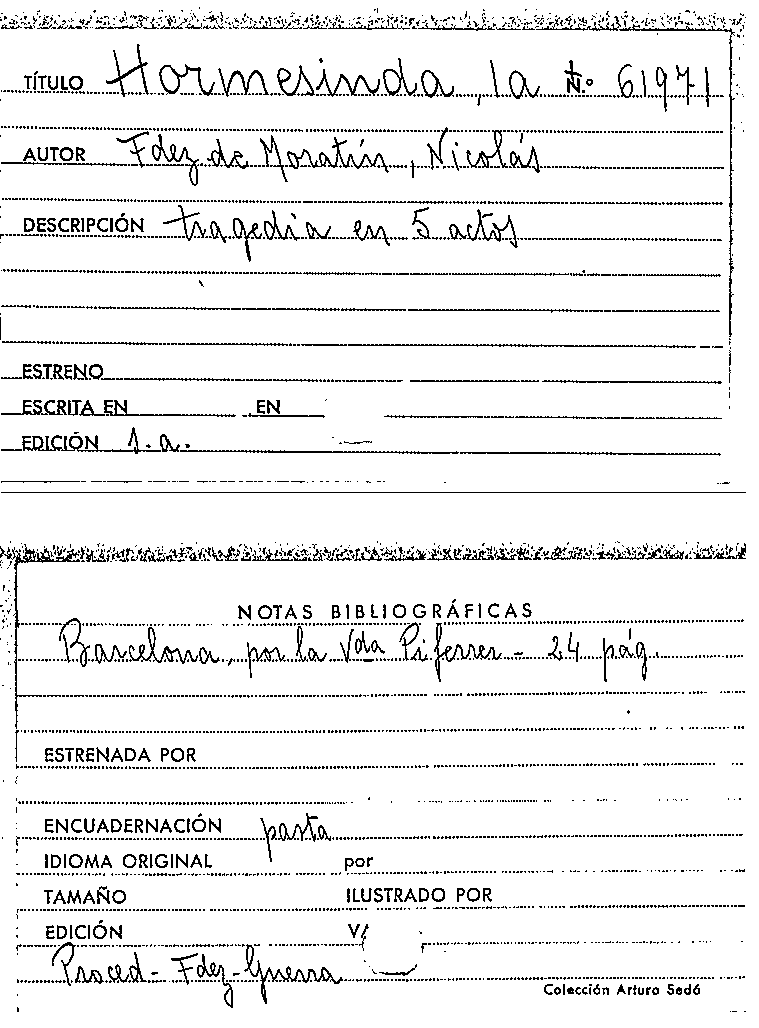 TÍTULO Hormesinda, la N.º 61971
AUTOR Fdez de Moratín, Nicolás
DESCRIPCIÓN tragedia en 5 actos
ESTRENO
ESCRITA EN EN
EDICIÓN s.a.
NOTAS BIBLIOGRÁFICAS
Barcelona, por la Vda Piferrer - 24 pág.
ESTRENADA POR
ENCUADERNACIÓN pasta
IDIOMA ORIGINAL por
TAMAÑO ILUSTRADO POR
EDICIÓN V/
Proced - Fdez-Guerra
Colección Arturo Sedó